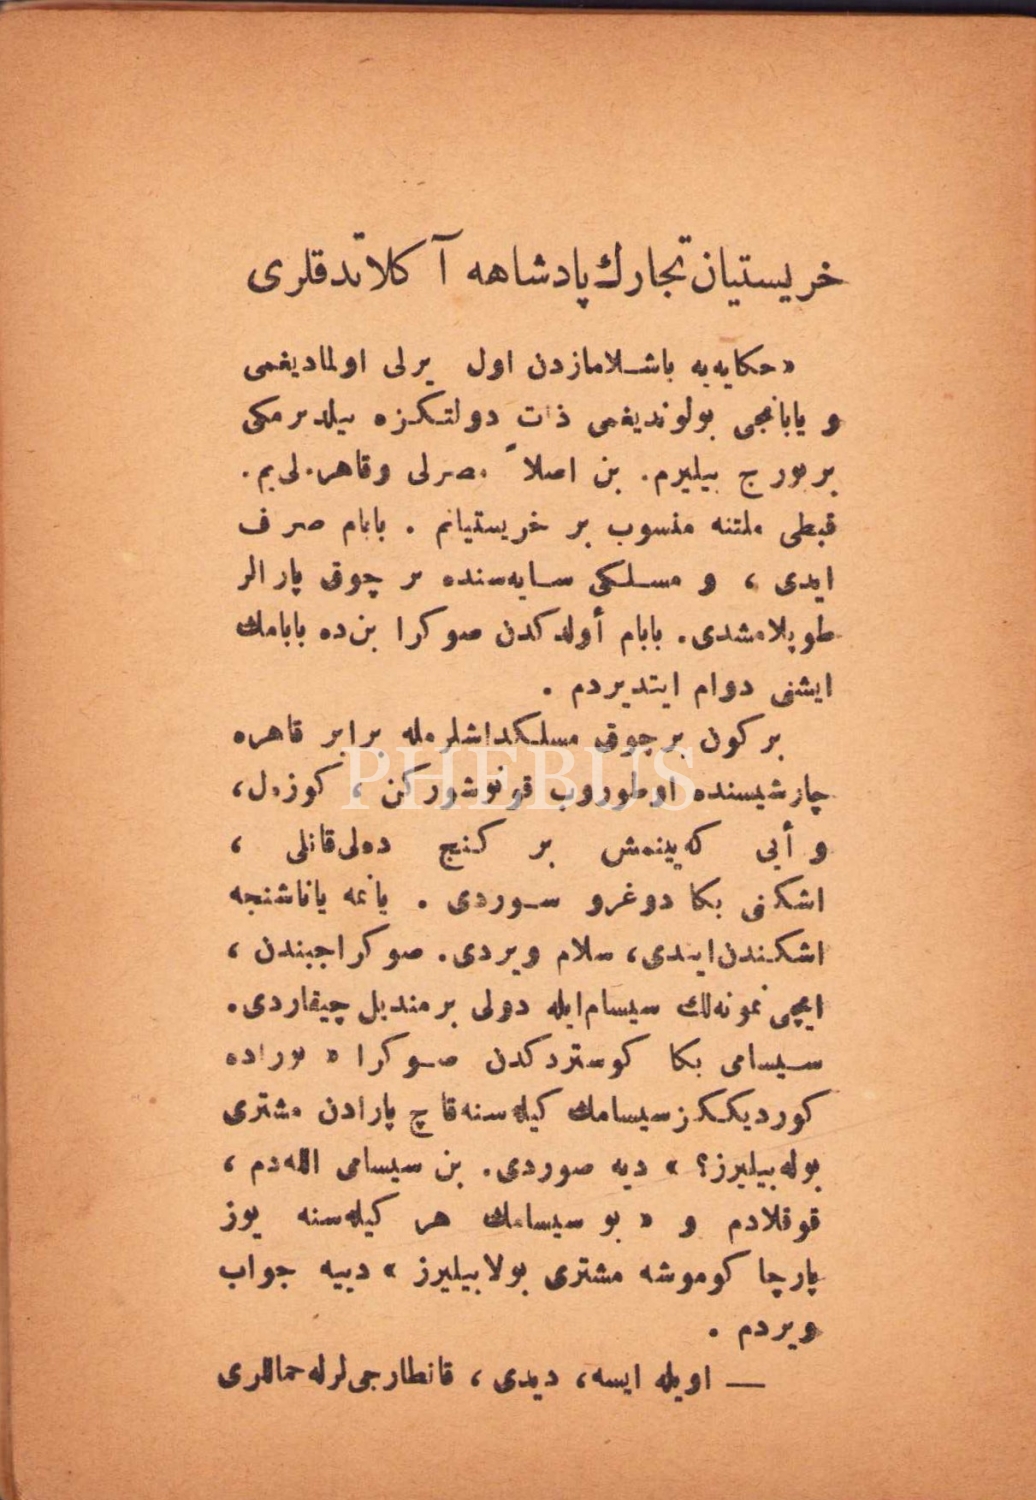 خریستیان تجارك پادشاهه آ كلاتدقلری
«حکایه‌یه باشلامازدن اول یرلی اولمادیغمی
و یابانجی بولوندیغمی ذات دولتکزه بیلدیرمکی
بر بورج بیلیرم. بن اصلاً مصرلی وقاهره‌لی‌یم.
قبطی ملتنه منسوب بر خریستیانم . بابام صرف
ایدی ، و مسلکی سایه‌سنده بر چوق پارالر
طوپلامشدی. بابام أولدكدن صوكرا بن‌ده بابامك
ایشنی دوام ایتدیردم .
بر كون برچوق مسلكداشلرمله برابر قاهره
چارشیسنده اوطوروب قونوشوركن ، كوزه‌ل،
و أیی كه‌ینمش بر كنج ده‌لی‌قانلی ،
اشكنی بكا دوغرو سوردی . یانمه یاناشنجه
اشكندن‌ایندی، سلام ویردی. صوكراجبندن ،
ایچی نمونه‌لك سیسام‌ایله دولی برمندیل چیقاردی.
سیسامی بكا كوستردكدن صوكرا « بوراده
كوردیككز سیسامك كیله‌سنه قاچ پارادن مشتری
بوله‌بیلیرز؟ » دیه صوردی. بن سیسامی اللەدم ،
قوقلادم و « بو سیسامك هر كیله‌سنه یوز
پارچا كوموشه مشتری بولابیلیرز » دییه جواب
ویردم .
— اویله ایسه، دیدی ، قانطارجی‌لرله حماللری
PHEBUS